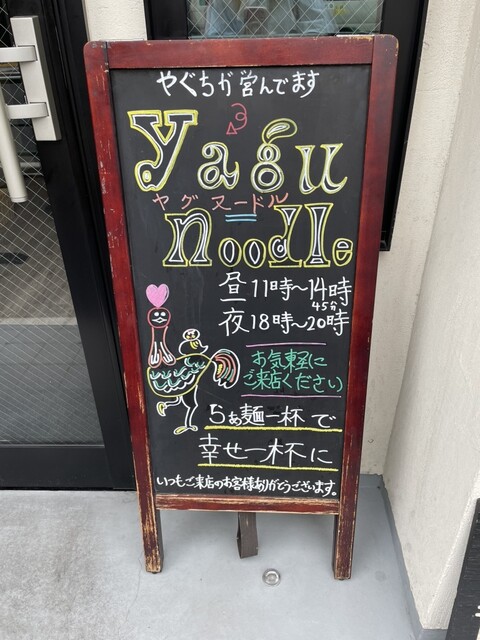 やぐちが営んでます
yagu
ヤグヌードル
noodle
昼11時〜14時
45分
夜18時〜20時
お気軽に
ご来店ください
らぁ麺一杯で
幸せ一杯に
いつもご来店のお客様ありがとうございます。